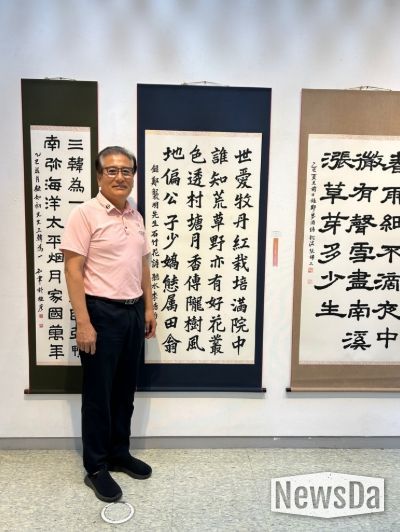 春雨細不滴夜中
微有聲雪盡南溪
漲草芽多少生
世愛牡丹紅栽培滿院中
誰知荒草野亦有好花叢
色透村塘月香傳隴樹風
地偏公子少嬌態屬田翁
錄鄭襲明先生石竹花詩
三韓為一 亘鴨
南弥海洋太平烟月家國萬年
NewsDa